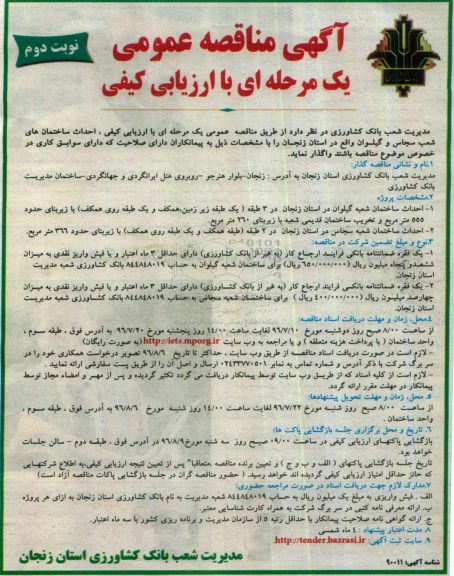 نوبت دوم
آگهی مناقصه عمومی
یک مرحله ای با ارزیابی کیفی
مدیریت شعب بانک کشاورزی در نظر دارد از طریق مناقصه عمومی یک مرحله ای با ارزیابی کیفی ، احداث ساختمان های
شعب سجاس و گیلوان واقع در استان زنجان را با مشخصات ذیل به پیمانکاران دارای صلاحیت که دارای سوابق کاری در
خصوص موضوع مناقصه باشند واگذار نماید.
۱.نام و نشانی مناقصه گذار:
مدیریت شعب بانک کشاورزی استان زنجان به آدرس : زنجان-بلوار هنرجو -روبروی هتل ایرانگردی و جهانگردی-ساختمان مدیریت
بانک کشاورزی
۲.مشخصات پروژه
۱- احداث ساختمان شعبه گیلوان در استان زنجان در ۳ طبقه ( یک طبقه زیر زمین،همکف و یک طبقه روی همکف) با زیربنای حدود
۵۵۵ متر مربع و تخریب ساختمان قدیمی شعبه با زیربنای ۲۶۰ متر مربع.
۲- احداث ساختمان شعبه سجاس در استان زنجان در ۲ طبقه (طبقه همکف و یک طبقه روی همکف) با زیربنای حدود ۳۶۶ متر مربع.
۳.نوع و مبلغ تضمین شرکت در مناقصه:
۱- یک فقره ضمانتنامه بانکی فرایند ارجاع کار (به غیر از بانک کشاورزی) دارای حداقل ۳ ماه اعتبار و یا فیش واریز نقدی به میزان
ششصدو پنجاه میلیون ریال (۶۵۰/۰۰۰/۰۰۰ ریال) برای ساختمان شعبه گیلوان به حساب ۸۴۴۸۴۸۰۱۹ بانک کشاورزی شعبه مدیریت
استان زنجان.
۲- یک فقره ضمانتنامه بانکی فرایند ارجاع کار (به غیر از بانک کشاورزی) دارای حداقل ۳ ماه اعتبار و یا فیش واریز نقدی به میزان
چهارصد میلیون ریال (۴۰۰/۰۰۰/۰۰۰ ریال) برای ساختمان شعبه سجاس به حساب ۸۴۴۸۴۸۰۱۹ بانک کشاورزی شعبه مدیریت
استان زنجان.
۴.محل، زمان و مهلت دریافت اسناد مناقصه:
از ساعت ۸/۰۰ صبح روز دوشنبه مورخ ۹۶/۷/۱۰ لغایت ساعت ۱۴/۰۰ روز پنجشنبه مورخ ۹۶/۷/۲۰ به آدرس فوق ، طبقه سوم ،
واحد ساختمان ( با پرداخت هزینه متعلقه ) و یا مراجعه به وب سایت http://iets.mporg.ir (به صورت رایگان)
- لازم است در صورت دریافت اسناد مناقصه از طریق وب سایت ، حداکثر تا تاریخ ۹۶/۸/۶ تصویر درخواست همکاری خود را در
سر برگ شرکت با ذکر آدرس و شماره تماس به نمابر ۰۲۴۳۳۷۷۰۵۰۱ ارسال و اصل آن را از طریق پست سفارشی ارائه نمایید .
- لازم است از کلیه اسناد که از طریق وب سایت توسط پیمانکار دریافت می گردد تکثیر گردیده و پس از مهر و امضاء مجاز توسط
پیمانکار در مهلت مقرر ارائه گردد.
۵. محل، زمان و مهلت تحویل پیشنهادها:
از ساعت ۸/۰۰ صبح روز شنبه مورخ ۹۶/۷/۲۲ لغایت ساعت ۱۴/۰۰ روز شنبه مورخ ۹۶/۸/۶ به آدرس فوق ، طبقه سوم ،
واحد ساختمان .
۶. تاریخ و محل برگزاری جلسه بازگشایی پاکت ها:
بازگشایی پاکتهای ارزیابی کیفی در ساعت ۰۹/۰۰ صبح روز سه شنبه مورخ ۹۶/۸/۹ در آدرس فوق ، طبقه دوم - سالن جلسات
خواهد بود.
تاریخ جلسه بازگشایی پاکتهای ( الف و ب و ج ) و تعیین برنده مناقصه ،متعاقبا" پس از تعیین نتیجه ارزیابی کیفی،به اطلاع شرکتهایی
که حائز حداقل امتیاز ارزیابی کیفی گردیده اند خواهد رسید. ( حضور مناقصه گران در جلسه بازگشایی پاکات مناقصه آزاد است)
۷.مدارک لازم جهت دریافت اسناد در صورت مراجعه حضوری:
الف . فیش واریزی به مبلغ یک میلیون ریال به حساب ۸۴۴۸۴۸۰۱۹ شعبه مدیریت به نام بانک کشاورزی استان زنجان به ازای هر پروژه
ب. ارائه معرفی نامه کتبی در سر برگ شرکت به همراه کارت شناسایی معتبر.
ج. ارائه گواهی نامه صلاحیت پیمانکار با حداقل رتبه ۵ از سازمان مدیریت و برنامه ریزی کشور با سه ماه اعتبار.
۸. مدت اعتبار پیشنهاد : ۴ ماه شمسی
۹. سایت ثبت آگهی: http://tender.bazrasi.ir
مدیریت شعب بانک کشاورزی استان زنجان
شناسه آگهی: ۹۰۰۱۱